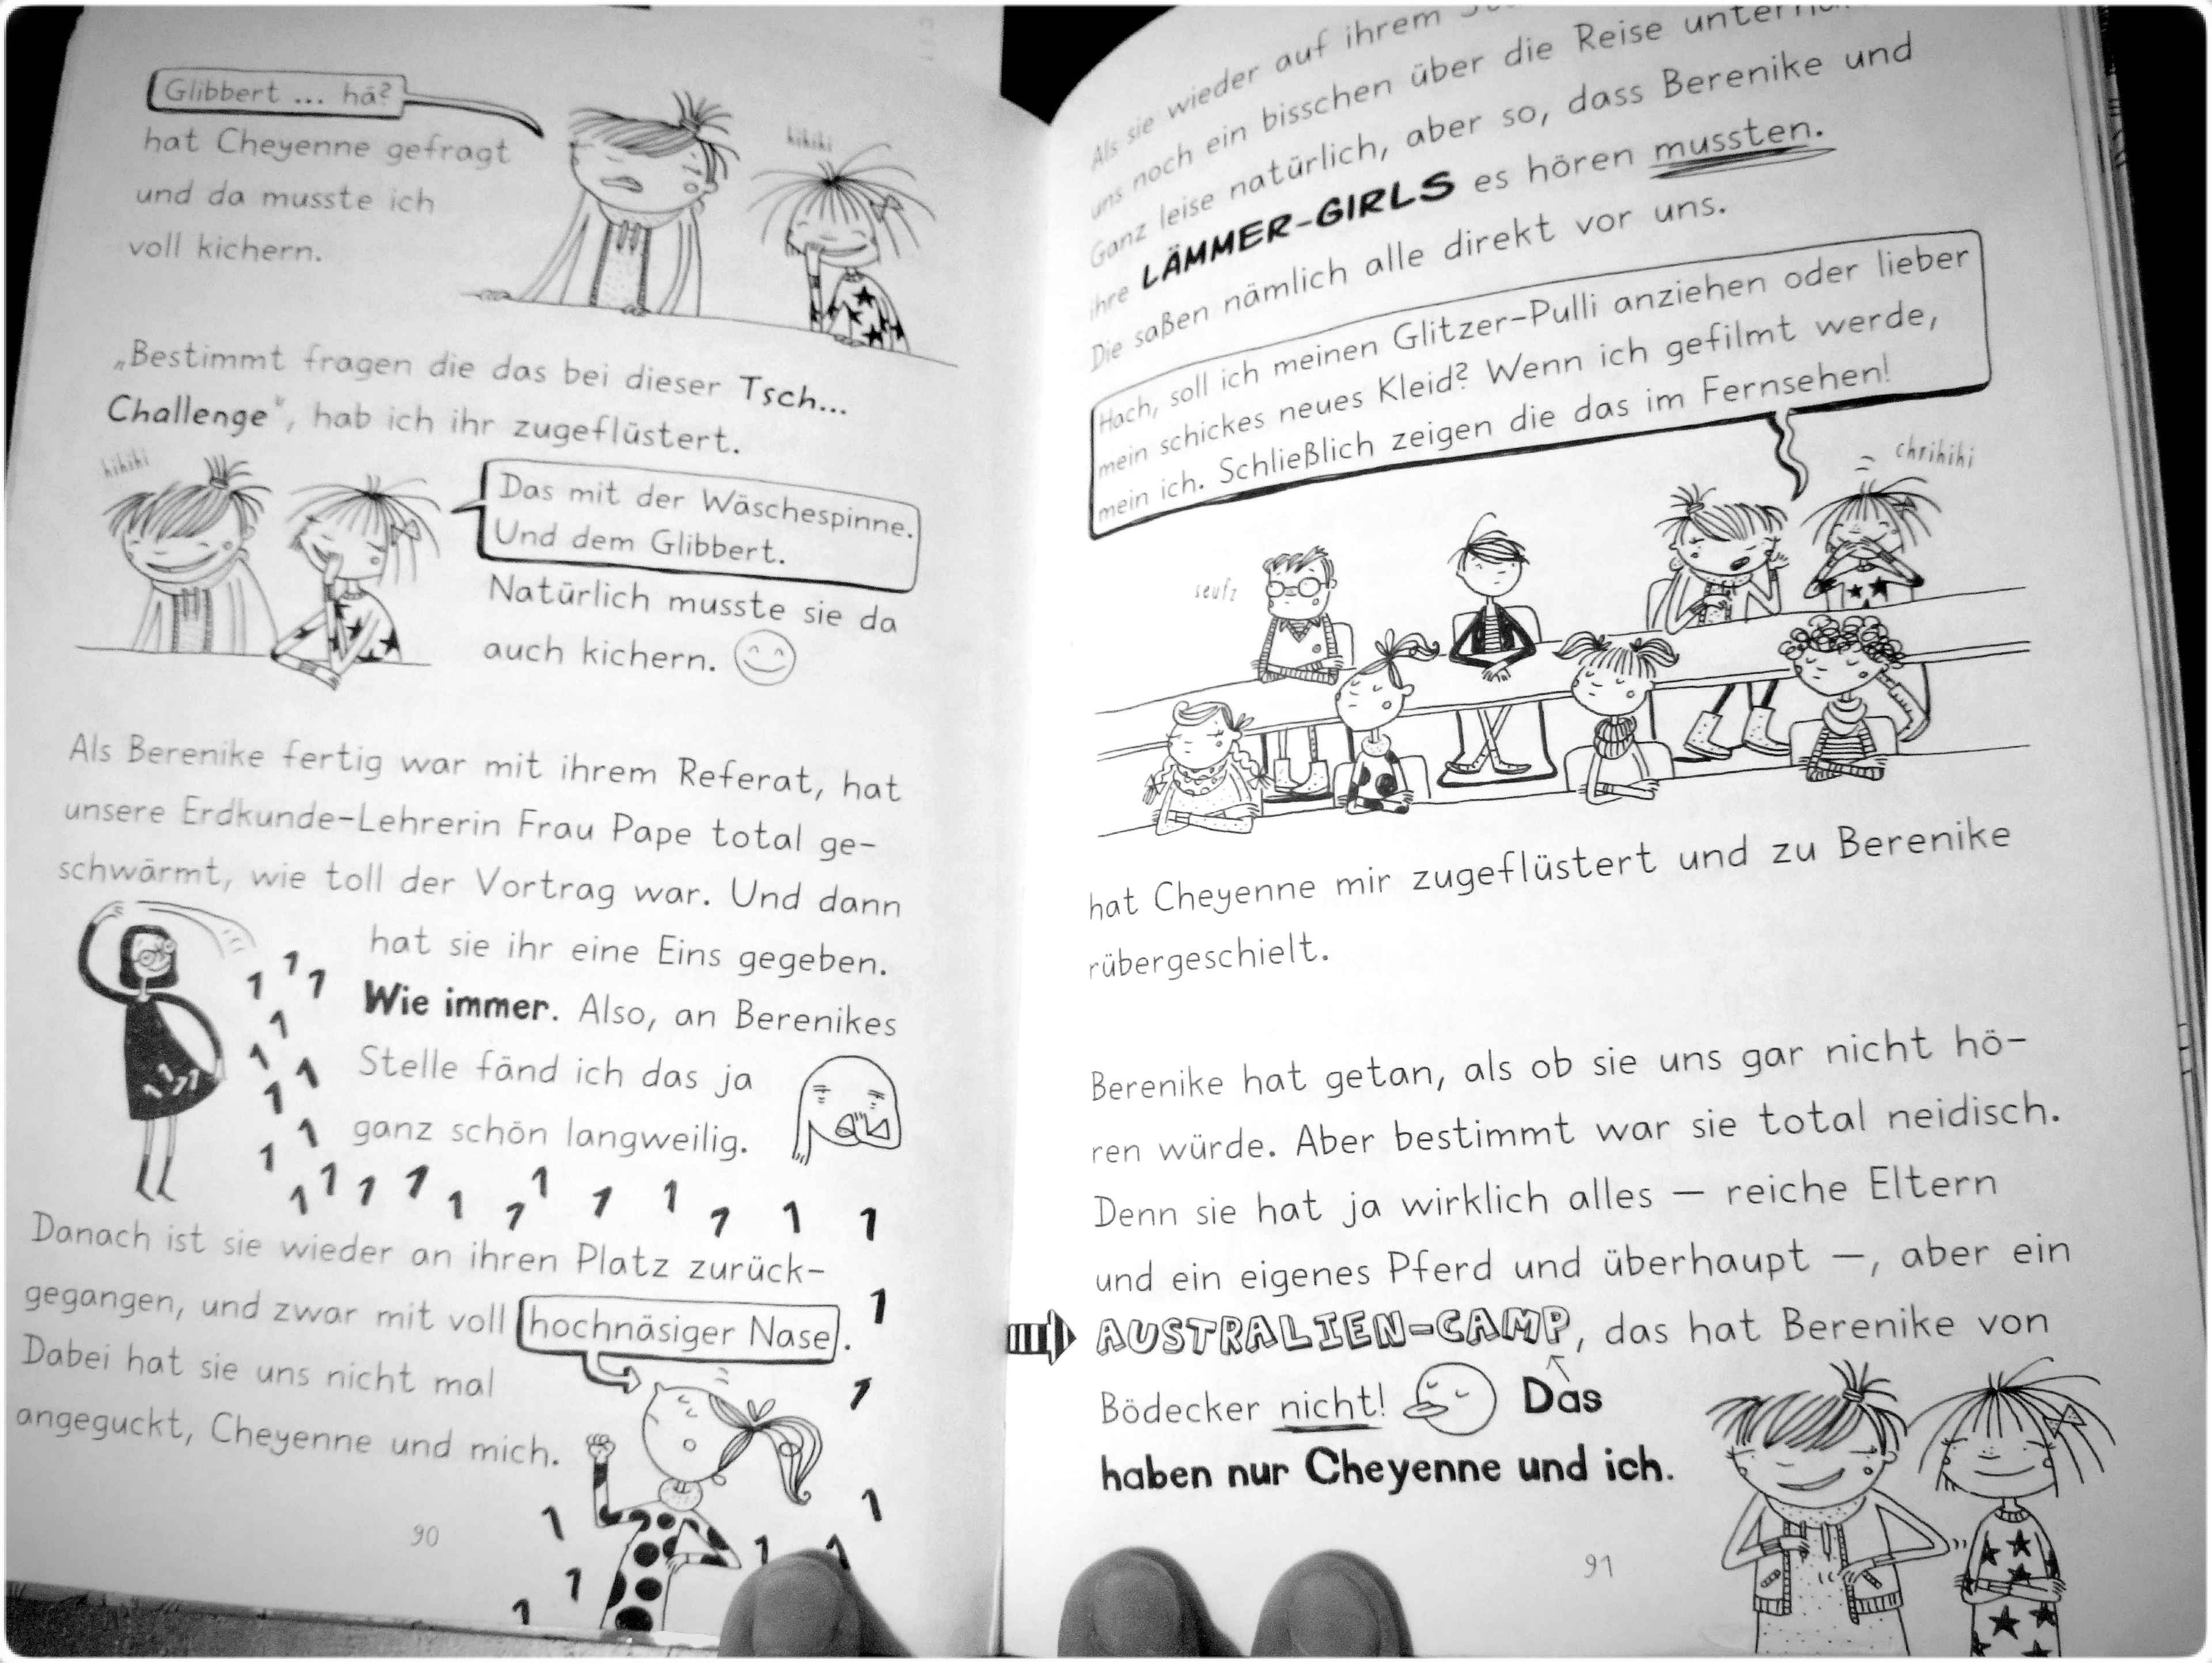 Glibbert ... hä?
hat Cheyenne gefragt
und da musste ich
voll kichern.
hihihi
„Bestimmt fragen die das bei dieser Tsch...
Challenge“, hab ich ihr zugeflüstert.
hihihi
Das mit der Wäschespinne.
Und dem Glibbert.
Natürlich musste sie da
auch kichern.
Als Berenike fertig war mit ihrem Referat, hat
unsere Erdkunde-Lehrerin Frau Pape total ge-
schwärmt, wie toll der Vortrag war. Und dann
hat sie ihr eine Eins gegeben.
Wie immer. Also, an Berenikes
Stelle fänd ich das ja
ganz schön langweilig.
Danach ist sie wieder an ihren Platz zurück-
gegangen, und zwar mit voll hochnäsiger Nase.
Dabei hat sie uns nicht mal
angeguckt, Cheyenne und mich.
90
Als sie wieder auf ihrem
uns noch ein bisschen über die Reise
Ganz leise natürlich, aber so, dass Berenike und
ihre LÄMMER-GIRLS es hören mussten.
Die saßen nämlich alle direkt vor uns.
Hach, soll ich meinen Glitzer-Pulli anziehen oder lieber
mein schickes neues Kleid? Wenn ich gefilmt werde,
mein ich. Schließlich zeigen die das im Fernsehen!
chrihihi
seufz
hat Cheyenne mir zugeflüstert und zu Berenike
rübergeschielt.
Berenike hat getan, als ob sie uns gar nicht hö-
ren würde. Aber bestimmt war sie total neidisch.
Denn sie hat ja wirklich alles – reiche Eltern
und ein eigenes Pferd und überhaupt –, aber ein
AUSTRALIEN-CAMP, das hat Berenike von
Bödecker nicht! Das
haben nur Cheyenne und ich.
91